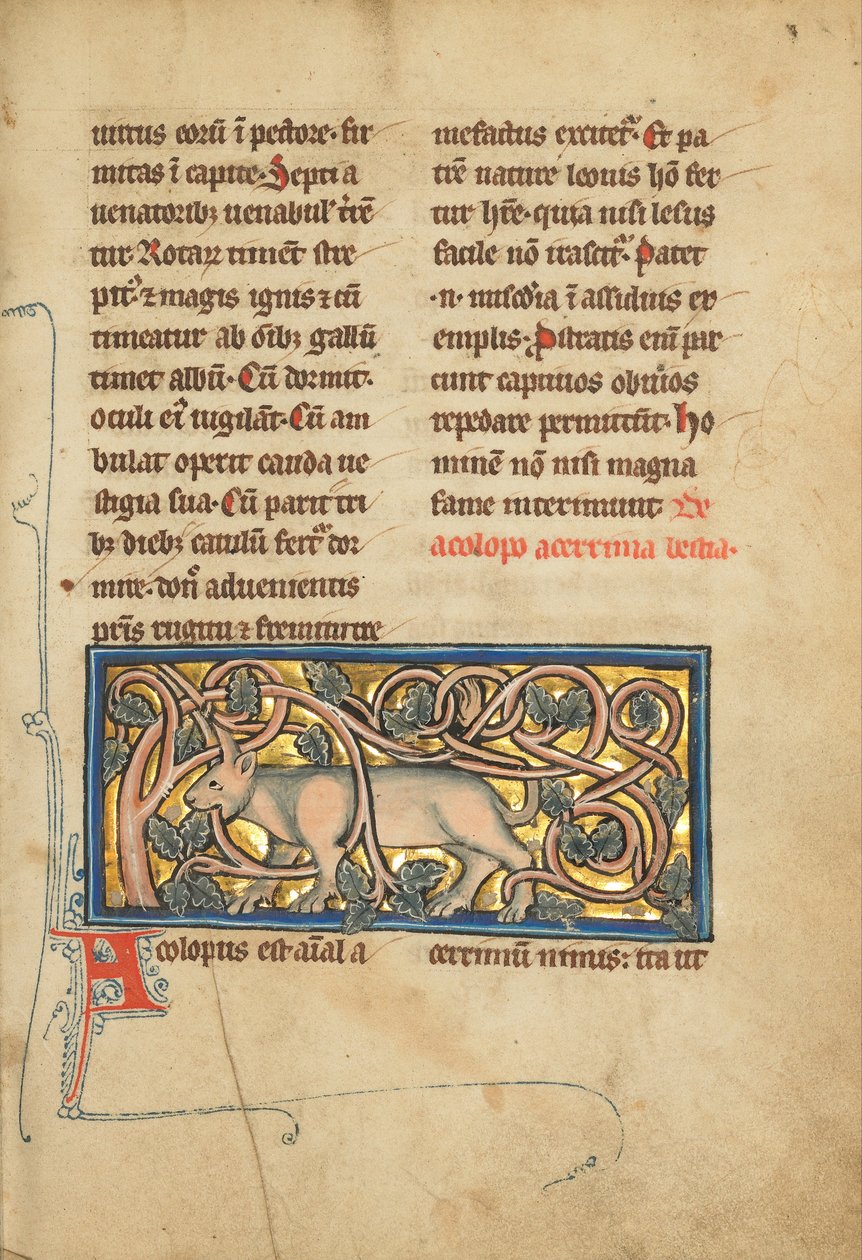 uirtus eorū ī pectore. fir
mitas ī capite. Septi a
uenatoribꝫ uenabul' t̄rē
tur. Rotaꝝ timēt stre
pit᷒. ⁊ magis ignis ⁊ cū
timeatur ab oībꝫ gallū
timet albū. Cū dormit.
oculi ei᷒ uigilāt. Cū am
bulat operit cauda ue
stigia sua. Cū parit tri
bꝫ diebꝫ catulū fert᷑ dor
mire. don̄ aduenientis
pr̄is rugitu ⁊ fremitu tre
mefactus excitet᷑. Et pa
trē nature leonis hō fer
tur hr̄e. quia nisi lesus
facile nō irascit᷑. Patet
.n. mīscďia ī assiduis ex
emplis. Prostratis enī par
cunt captiuos obuios
repedare permittūt. Ho
minē nō nisi magna
fame interimunt De
acolopo acerrima bestia.
Acolopus est aīal a
cerrimū nimis: ita ut